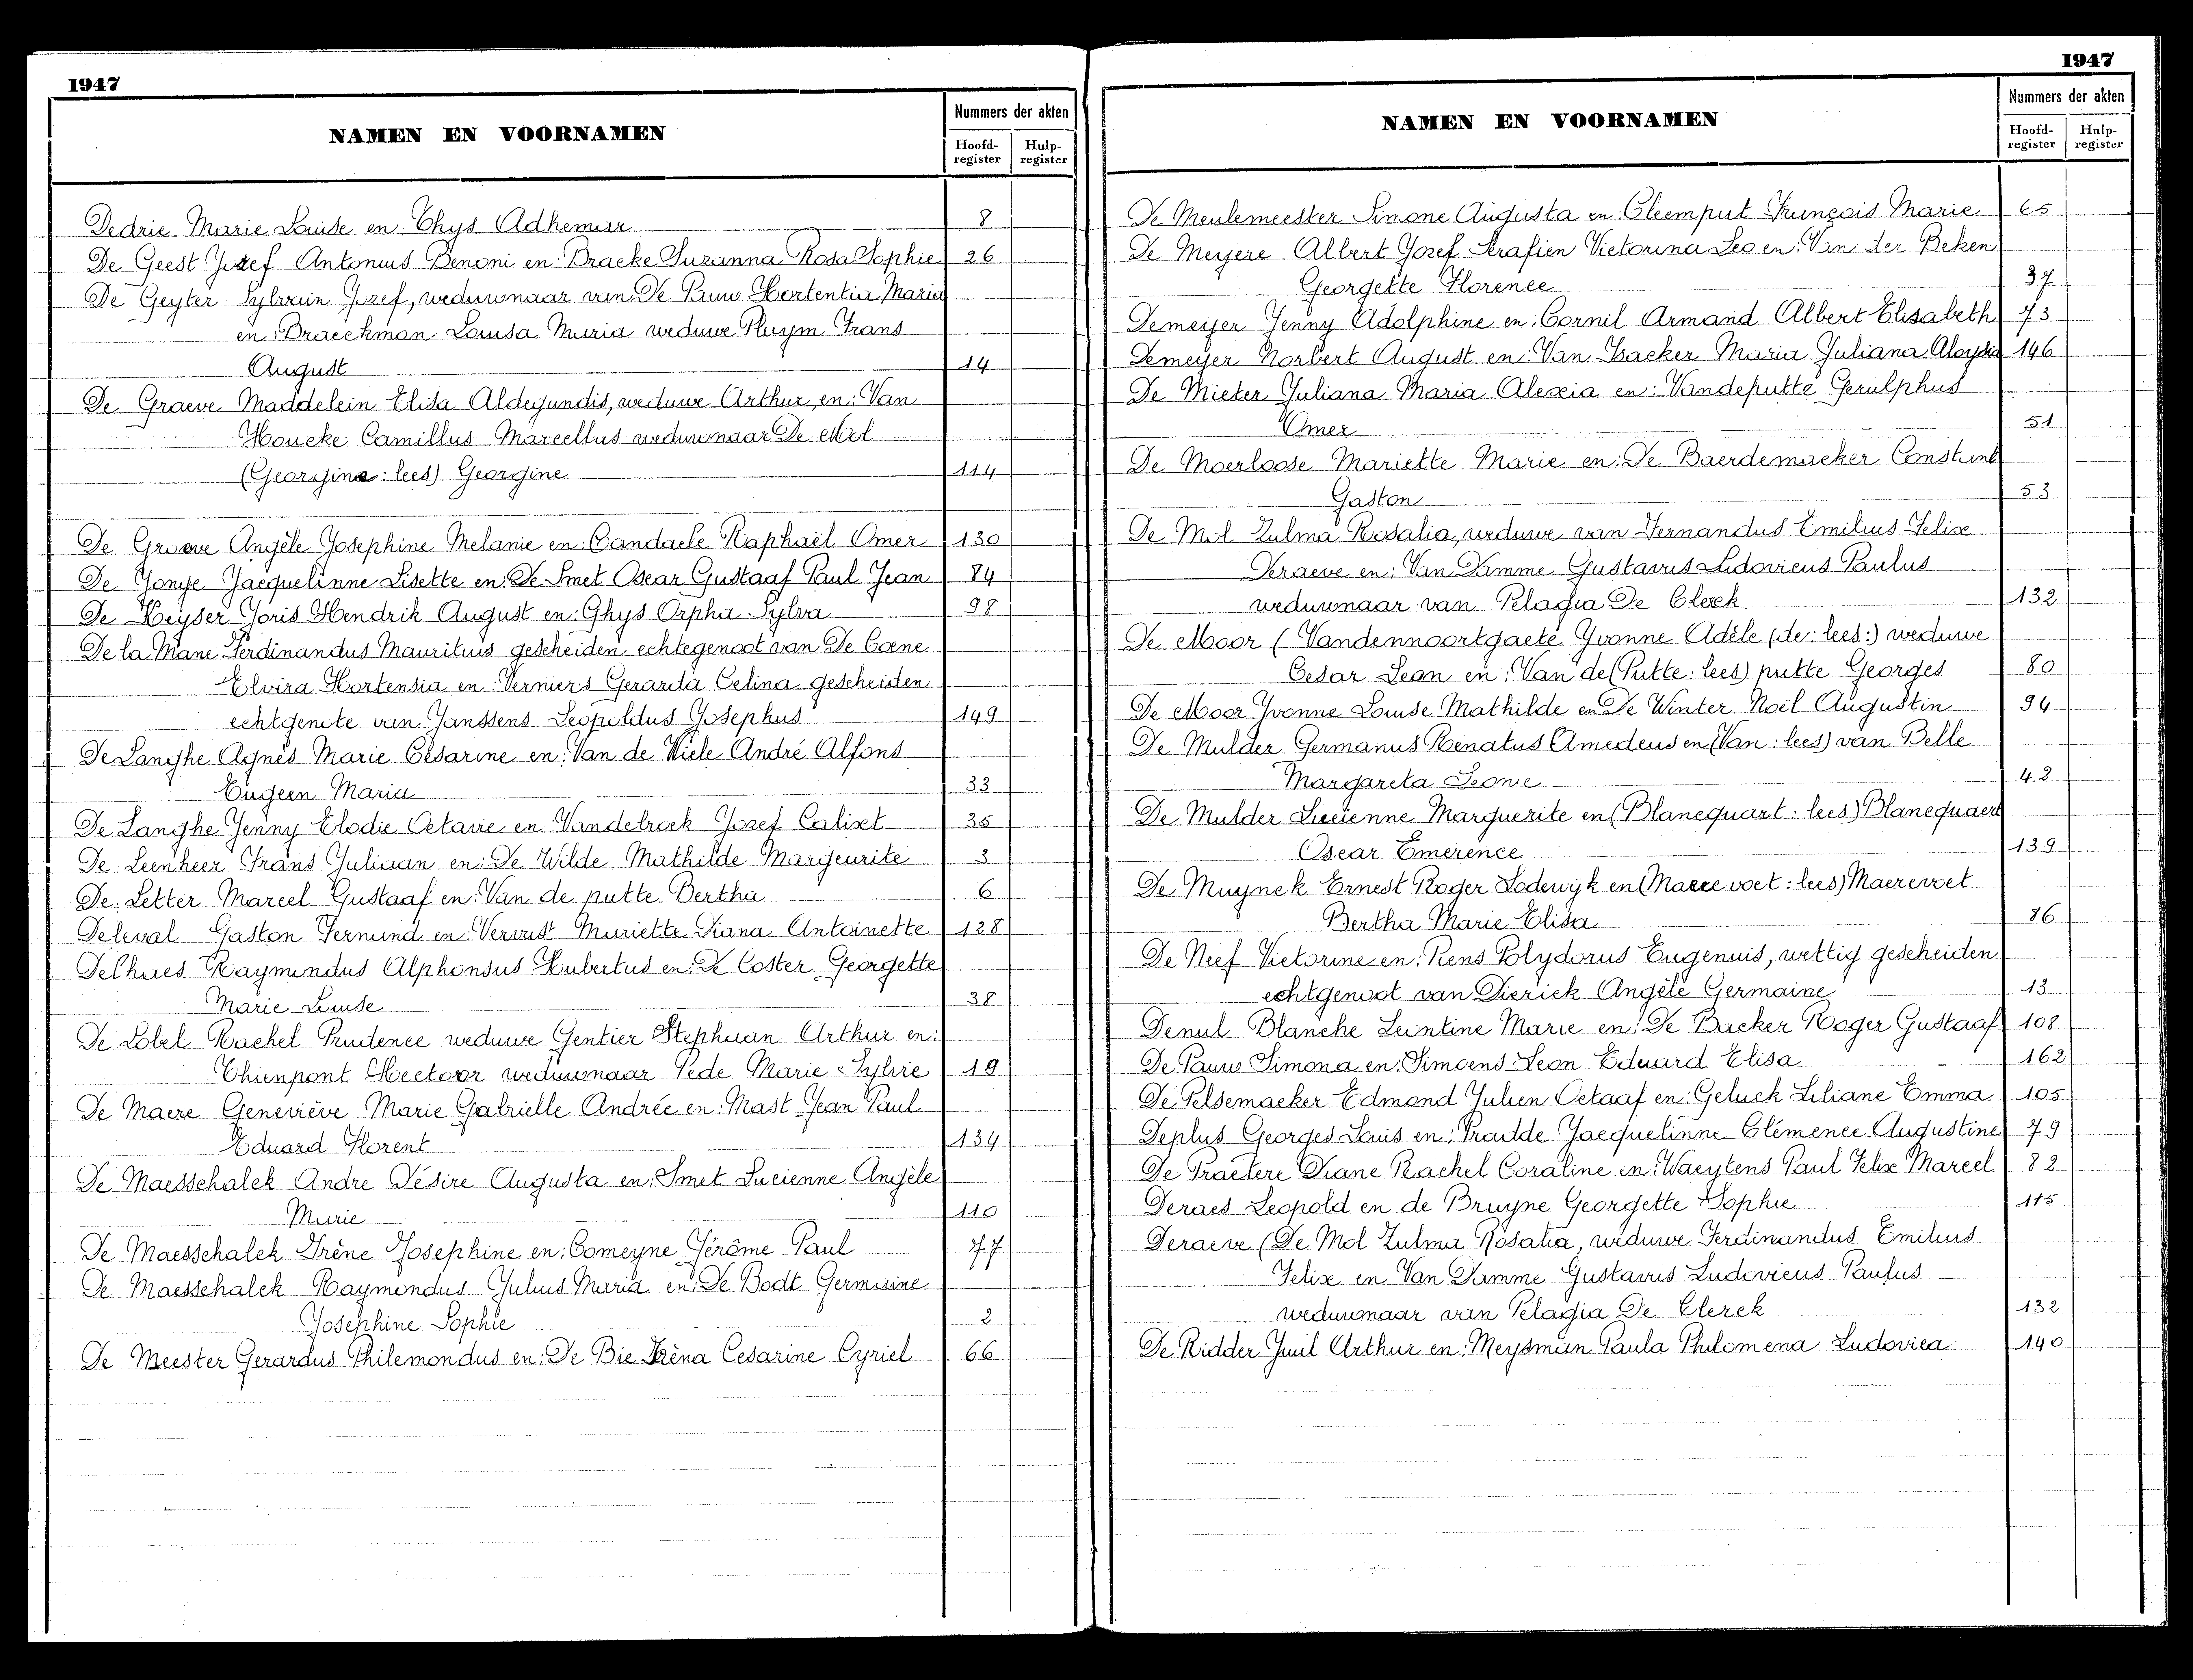 1947
NAMEN EN VOORNAMEN
Nummers der akten
Hoofd-register Hulp-register
Dedrie Marie Louise en Thys Adhemar 8
De Geest Jozef Antonius Benoni en: Braeke Suzanna Rosa Sophie 26
De Geyter Sylvain Jozef, weduwnaar van De Pauw Hortentia Maria
en: Braeckman Louisa Maria weduwe Pluym Frans
August 14
De Graeve Maddelein Elisa Aldegundis, weduwe Arthur, en: Van
Houcke Camillus Marcellus weduwnaar De Mol
(Georgina: lees) Georgine 114
De Groeve Angèle Josephine Melanie en: Candaele Raphaël Omer 130
De Jonge Jacquelinne Lisette en: De Smet Oscar Gustaaf Paul Jean 84
De Keyser Joris Hendrik August en: Ghys Orpha Sylva 98
De la Mane Ferdinandus Mauritius gescheiden echtegenoot van De Coene
Elvira Hortensia en: Verniers Gerarda Celina gescheiden
echtgenote van Janssens Leopoldus Josephus 149
De Langhe Agnès Marie Césarine en: Van de Wiele André Alfons
Eugeen Maria 33
De Langhe Jenny Elodie Octavie en Vandebroek Jozef Calixt 35
De Leenheer Frans Juliaan en: De Wilde Mathilde Margeurite 3
De Letter Marcel Gustaaf en: Van de putte Bertha 6
Deleval Gaston Fernand en: Vervust Mariette Diana Antoinette 128
Delhues Raymundus Alphonsus Hubertus en: De Coster Georgette
Marie Louise 38
De Lobel Rachel Prudence weduwe Gentier Stephaan Arthur en:
Thienpont Hectoor weduwnaar Pede Marie Sylvie 19
De Maere Geneviève Marie Gabrielle Andrée en: Mast Jean Paul
Eduard Florent 134
De Maesschalck Andre Désire Augusta en: Smet Lucienne Angèle
Marie 110
De Maesschalck Irène Josephine en: Comeyne Jérôme Paul 77
De Maesschalck Raymondus Julius Maria en: De Bodt Germaine
Josephine Sophie 2
De Meester Gerardus Philemondus en: De Bie Irèna Cesarine Cyriel 66
1947
NAMEN EN VOORNAMEN
Nummers der akten
Hoofd-register Hulp-register
De Meulemeester Simone Augusta en: Cleemput François Marie 65
De Meyere Albert Jozef Serafien Victorina Leo en: Van der Beken
Georgette Florence 37
Demeyer Jenny Adolphine en: Cornil Armand Albert Elisabeth 73
Demeyer Norbert August en: Van Isacker Maria Juliana Aloysia 146
De Mieter Juliana Maria Alexia en: Vandeputte Gerulphus
Omer 51
De Moerloose Mariette Marie en: De Baerdemaeker Constant
Gaston 53
De Mol Zulma Rosalia, weduwe van Fernandus Emilius Felix
Deraeve en: Van Damme Gustavus Ludovicus Paulus
weduwnaar van Pelagia De Clerck 132
De Moor (Vandennoortgaete Yvonne Adèle (de: lees:) weduwe
Cesar Leon en: Van de (Putte: lees) putte Georges 80
De Moor Yvonne Louise Mathilde en De Winter Noël Augustin 94
De Mulder Germanus Renatus Amedeus en (Van: lees) van Belle
Margareta Leonie 42
De Mulder Lucienne Marguerite en (Blancquart: lees) Blancquaert
Oscar Emerence 139
De Muynck Ernest Roger Lodewijk en (Maere voet: lees) Maerevoet
Bertha Marie Elisa 86
De Neef Victorine en: Piens Polydorus Eugenius, wettig gescheiden
echtgenoot van Dierick Angèle Germaine 13
Denul Blanche Leontine Marie en: De Backer Roger Gustaaf 108
De Pauw Simona en: Simoens Leon Eduard Elisa 162
De Pelsemaeker Edmond Julien Octaaf en: Geluck Liliane Emma 105
Deplus Georges Louis en: Tradde Jacquelinne Clémence Augustine 79
De Praetere Diane Rachel Coraline en: Waeytens Paul Felix Marcel 82
Deraes Leopold en de Bruyne Georgette Sophie 115
Deraeve (De Mol Zulma Rosalia, weduwe Ferdinandus Emilius
Felix en Van Damme Gustavus Ludovicus Paulus
weduwnaar van Pelagia De Clerck 132
De Ridder Juul Arthur en: Meysman Paula Philomena Ludovica 140